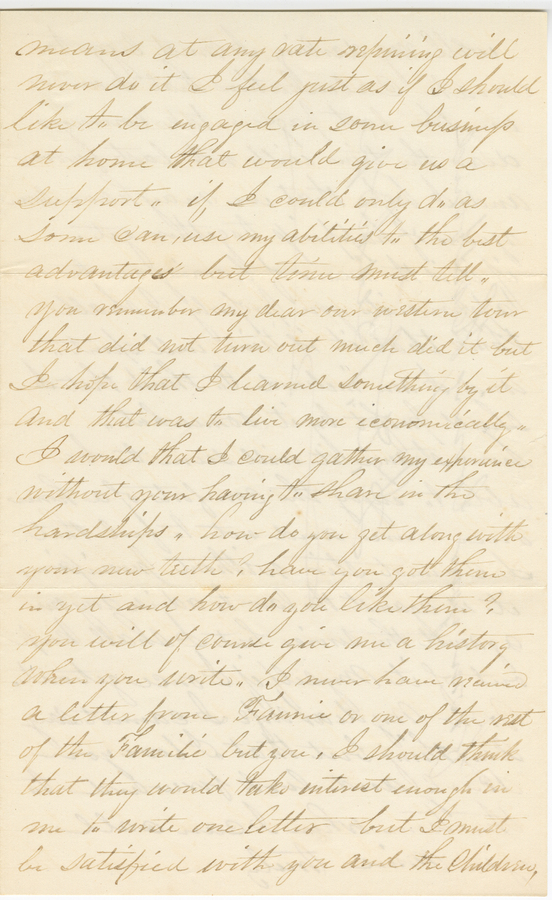 means at any rate repining will
never do it I feel just as if I should
like to be engaged in some business
at home that would give us a
support„ if, I could only do as
some can, use my abilities to the best
advantages but time must tell„
you remember my dear our western tour
that did not turn out much did it but
I hope that I learned something by it
and that was to live more economically„
I would that I could gather my experience
without your having to share in the
hardships„ how do you get along with
your new teeth? have you got them
in yet and how do you like them?
you will of course give me a history
when you write„ I never have received
a letter from Fannie or one of the rest
of the Familie but you, I should think
that they would take interest enough in
me to write one letter but I must
be satisfied with you and the Children,